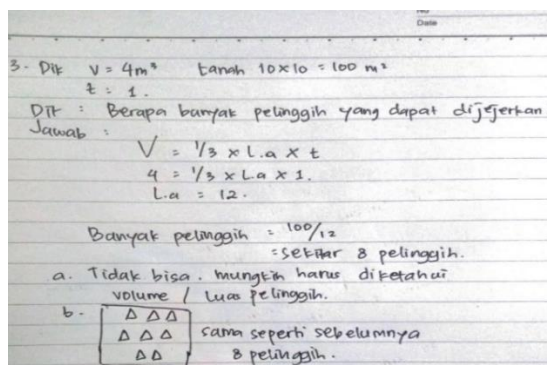 Date
3. Dik V = 4m³ tanah 10x10 = 100 m²
t = 1.
Dit : Berapa banyak pelinggih yang dapat dijejerkan
Jawab :
V = 1/3 x L.a x t
4 = 1/3 x L.a x 1.
L.a = 12.
Banyak pelinggih = 100/12
= sekitar 8 pelinggih.
a. Tidak bisa. mungkin harus diketahui
volume / luas pelinggih.
b. sama seperti sebelumnya
8 pelinggih.